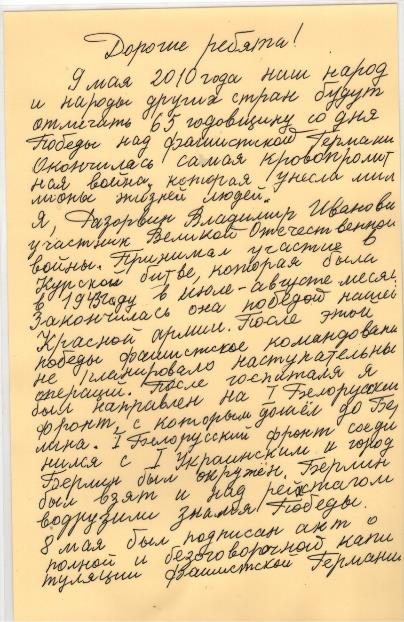 Дорогие ребята!
9 мая 2010 года наш народ
и народы других стран будут
отмечать 65 годовщину со дня
Победы над фашистской Германи
Окончилась самая кровопролит
ная война, которая унесла мил
лионы жизней людей.
Я, Лазорвин Владимир Иванови
участник Великой Отечественной
войны. Принимал участие в
Курской битве, которая была
в 1943 году в июле-августе месяц
Закончилась она победой нашей
Красной армии. После этой
победы фашистское командован
не планировало наступательны
операций. После госпиталя я
был направлен на I Белорусский
фронт, с которым дошёл до Бер
лина. I Белорусский фронт соеди
нился с I Украинским и город
Берлин был окружён. Берлин
был взят и над рейхстагом
водрузили знамя Победы.
8 мая был подписан акт о
полной и безоговорочной капи
туляции фашистской Германии